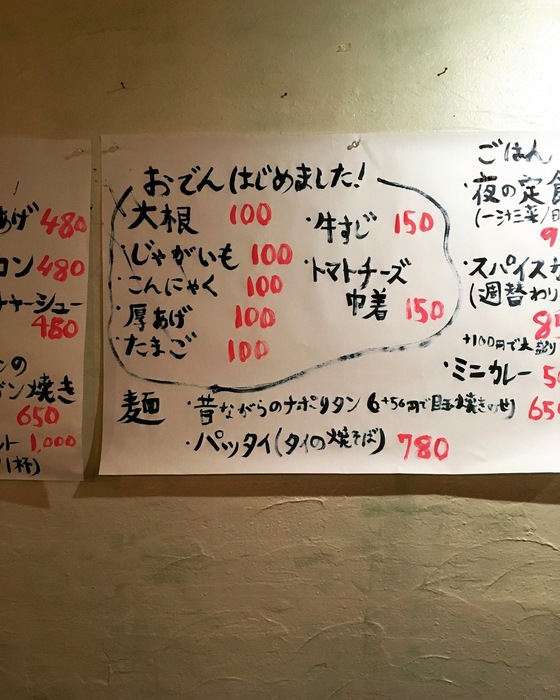 あげ 480
コン 480
チャーシュー
480
の
焼き
650
ント 1,000
1杯)
おでんはじめました!
大根 100
・じゃがいも 100
・こんにゃく 100
・厚あげ 100
・たまご 100
・牛すじ 150
・トマトチーズ
巾着 150
麺
・昔ながらのナポリタン
+50円で目玉焼きのせ) 650
・パッタイ(タイの焼そば) 780
ごはん
・夜の定食
(一汁三菜/日
9
・スパイスカ
(週替わり
8
+100円で大盛り
・ミニカレー 5